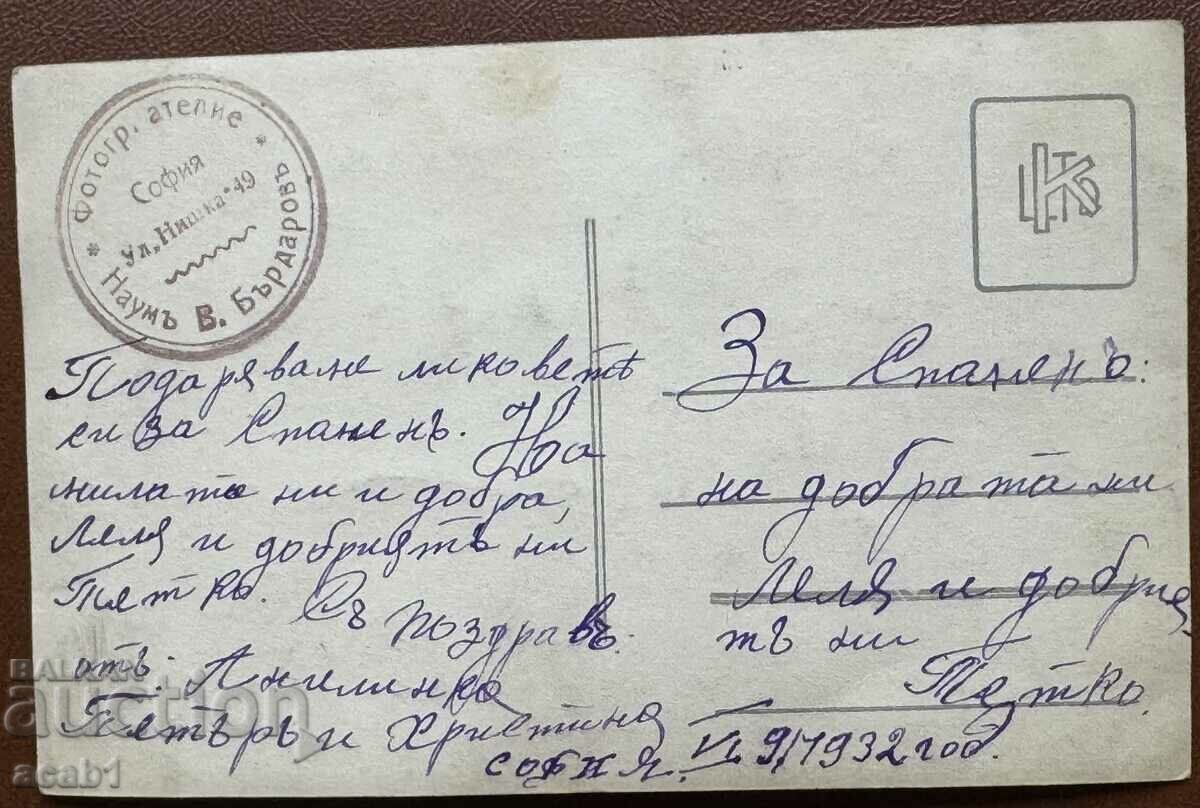 * Фотогр. ателие *
София
Ул. „Нишка" 49
Наумъ В. Бърдаровъ
Подаряваме ликоветѣ
си за Спаменъ. На
милата ни и добра,
Леля и добриятъ ни
Петко. Съ поздравъ.
отъ: Анилинка
Петъръ и Христина
София. VI. 9/1932 год.
За Спаменъ:
на добрата ни
Леля и добрия
тъ ни
Петко.
BALKAN
auction
acab1